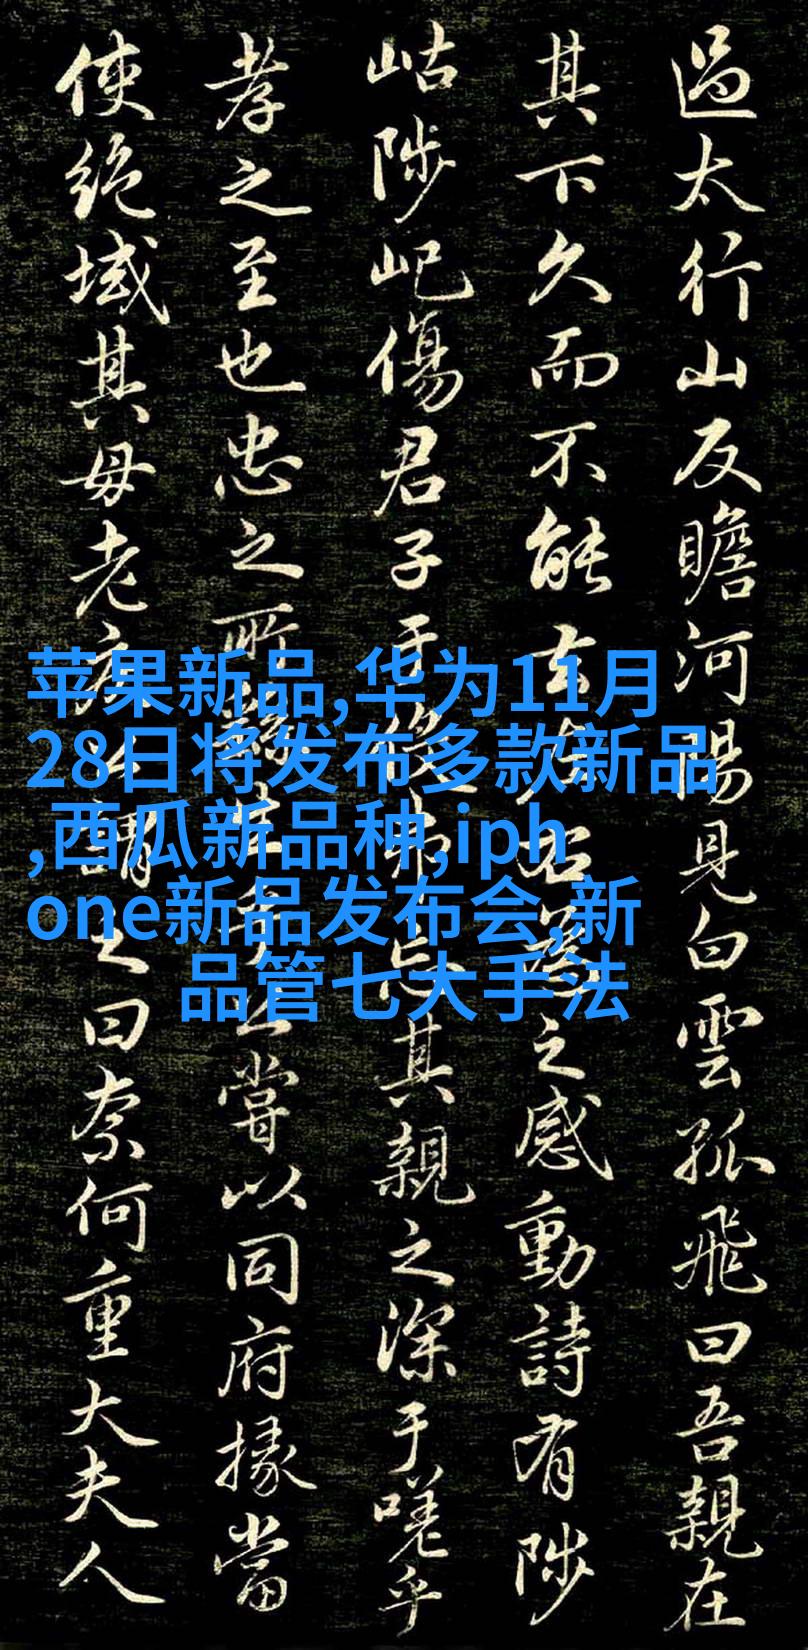 過太行山反瞻河陽見白雲孤飛曰吾親在
其下久而不能去左右為之感動詩有陟
岵陟屺傷君子于役弗忘其親之深于嗟乎
孝之至也忠之所繇生乎公嘗以同府掾當
使絕域其母老疾公謂之曰奈何重大夫人
苹果新品,华为11月
28日将发布多款新品
,西瓜新品种,iph
one新品发布会,新
品管七大手法